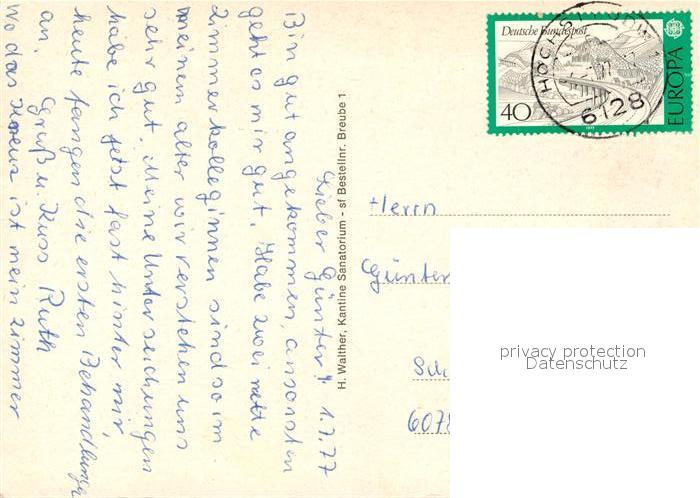 Lieber Günter! 1.7.77
Bin gut angekommen, ansonsten
geht es mir gut. Habe zwei nette
Zimmerkolleginnen sind so im
meinem alter wir verstehen uns
sehr gut. Meine Unterseichungen
habe ich jetzt fast hinter mir,
heute fangen die ersten Behandlunge
an.
Gruß u. Kuss Ruth
Wo das Kreuz ist mein Zimmer
H. Walther, Kantine Sanatorium - sf Bestellnr. Breube 1
Deutsche Bundespost
40
EUROPA
HÖCHST
6128
Herrn
Günter
607
privacy protection
Datenschutz